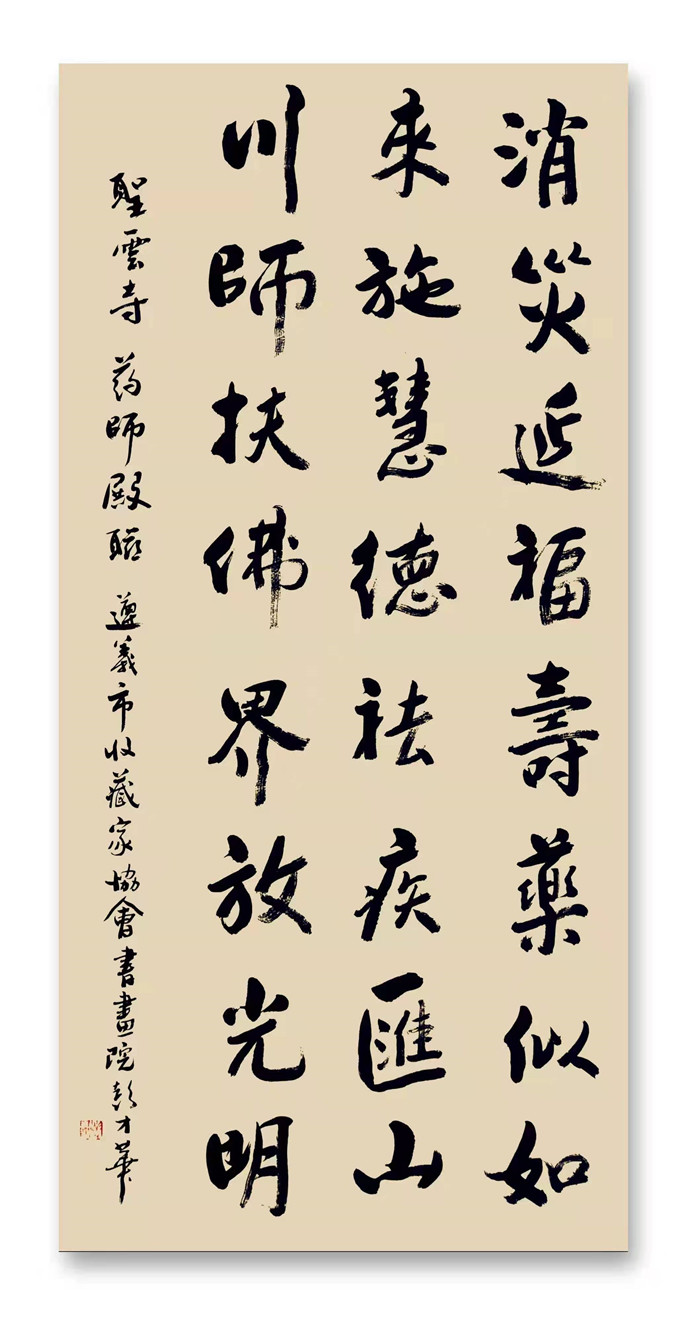 消災延福壽藥似如
來施慧德祛疾匯山
川師扶佛界放光明
聖雲寺 药師殿聯 遵義市收藏家協會書畫院彭才華